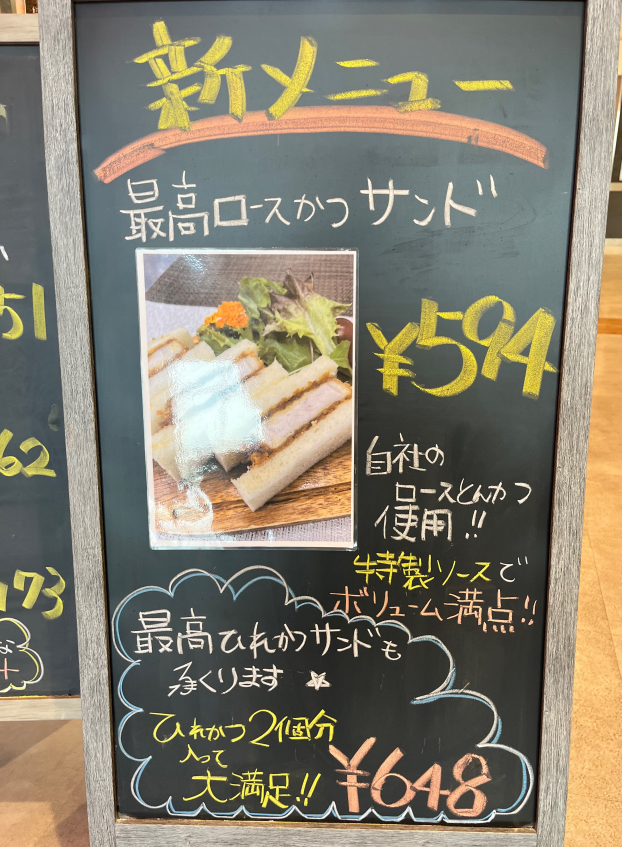 新メニュー
最高ロースかつサンド
¥594
自社の
ロースとんかつ
使用!!
特製ソースで
ボリューム満点!!
最高ひれかつサンドも
承くります☆
ひれかつ2個分
入って
大満足!!
¥648
51
62
173
な
+